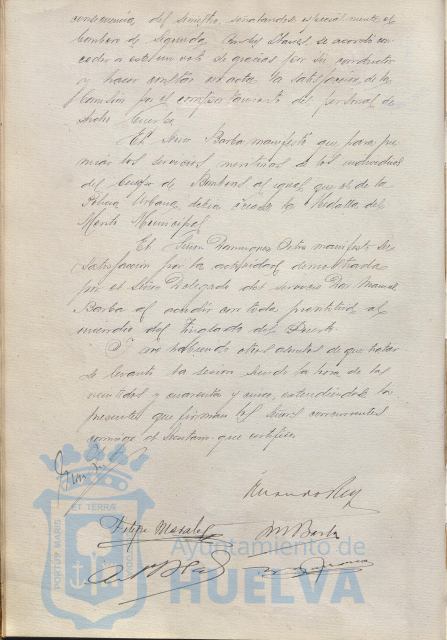 consecuencia del siniestro, señalandose especialmente el
bombero de segunda se acordó con
ceder a este un voto de gracias por su conducta
y hacer constar en acta la satisfacción de la
Comisión por el comportamiento del personal de
dicho Cuerpo.
El Señor Barba manifestó que para pre
miar los servicios meritorios de los individuos
del Cuerpo de Bomberos al igual que el de la
Policia Urbana debia crearse la Medalla del
Merito Municipal.
El Señor Dominguez Ortiz manifestó su
satisfacción por la actividad demostrada
por el Señor Delegado del servicio Don Manuel
Barba al acudir con toda prontitud al
incendio del Tinglado del Puerto.
Y no habiendo otros asuntos de que tratar
se levantó la sesion siendo la hora de las
veintidos y cuarenta y cinco, extendiendose la
presente que firman los Señores concurrentes
conmigo el Secretario que certifico.
Felipe Morales M Barba
PORTUS MARIS ET TERRAE
Ayuntamiento de
HUELVA